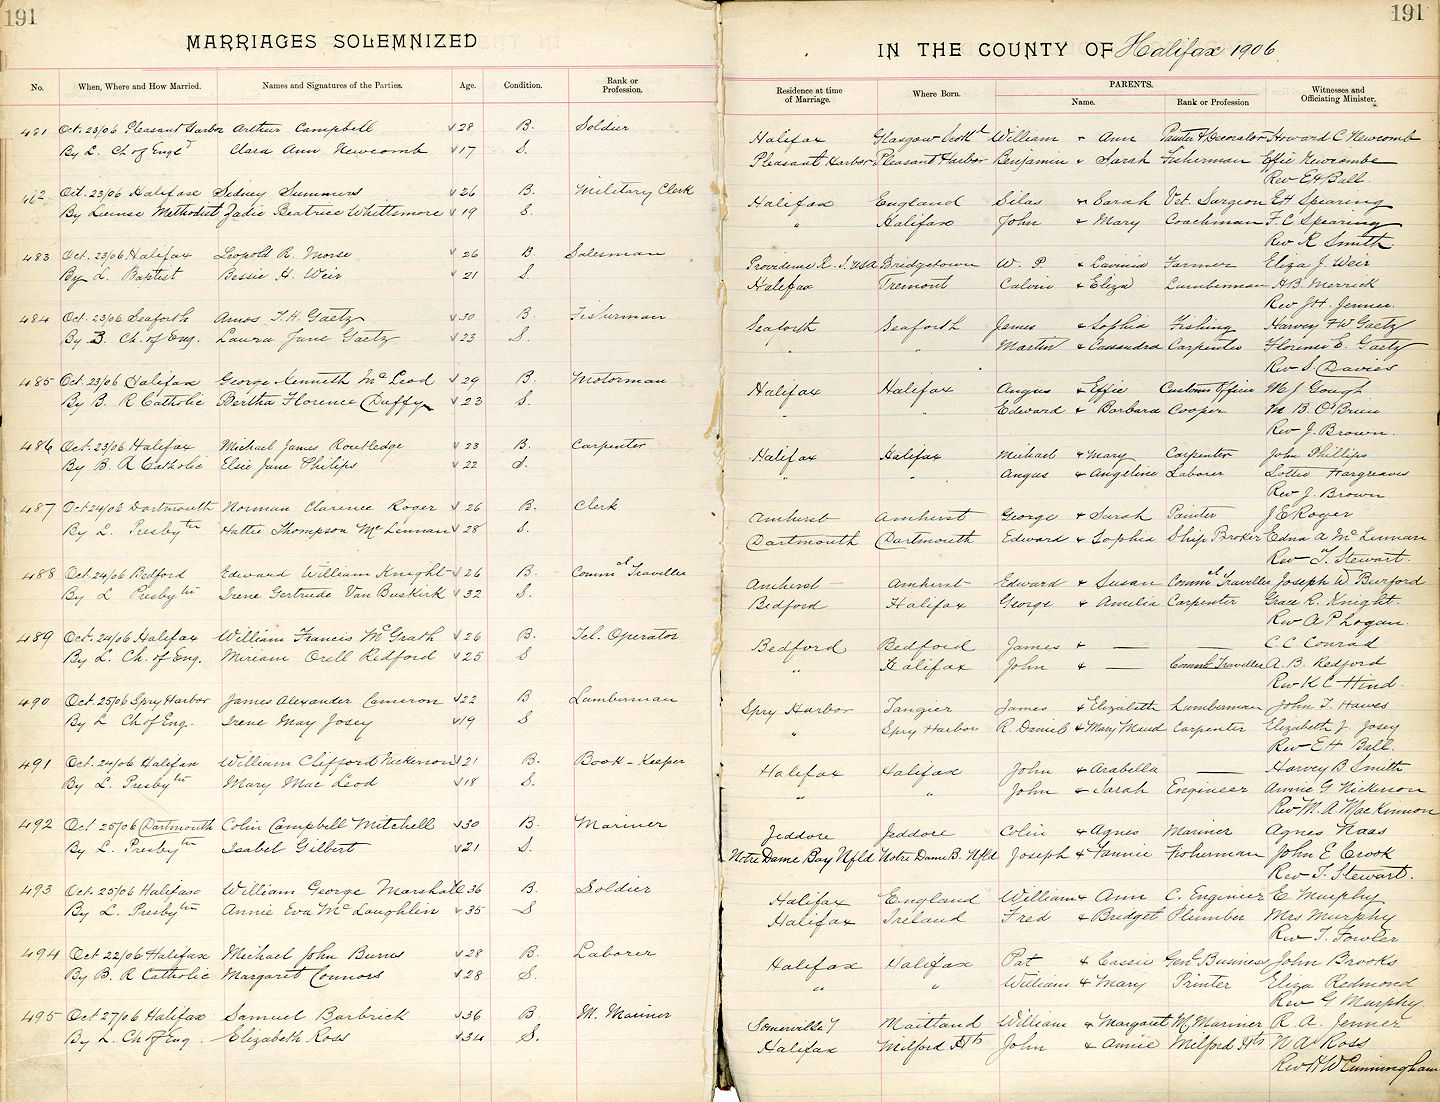 191
191
MARRIAGES SOLEMNIZED
IN THE COUNTY OF Halifax 1906.
No. When, Where and How Married. Names and Signatures of the Parties. Age. Condition. Rank or Profession.
Residence at time of Marriage. Where Born. PARENTS. Name. Rank or Profession Witnesses and Officiating Minister.
481 Oct. 23/06 Pleasant Harbor Arthur Campbell 28 B. Soldier Halifax Glasgow Scotd William & Ann Painter & Decorator Howard C Newcomb
By L. Ch of Engd Clara Ann Newcomb 17 S. Pleasant Harbor Pleasant Harbor Benjamin & Sarah Fisherman Effie Newcombe
Rev E H Ball.
482 Oct. 23/06 Halifax Sidney Summers 26 B. Military Clerk Halifax England Silas & Sarah Vet. Surgeon E H Spearing
By License Methodist Zadie Beatrice Whittimore 19 S. " Halifax John & Mary Coachman F. C Spearing
Rev R Smith
483 Oct. 23/06 Halifax Leopold R. Morse 26 B. Salesman Providence R. I. USA Bridgetown W. P. & Lavinia Farmer Eliza J. Weir
By L. Baptist Bessie H. Weir 21 S. Halifax Tremont Calvin & Eliza Lumberman H B. Merrick
Rev J H. Jenner.
484 Oct. 23/06 Seaforth Amos T. H. Gaetz 30 B. Fisherman Seaforth Seaforth James & Sophia Fishing Harvey F W Gaetz
By B. Ch. of Eng. Laura Jane Gaetz 23 S. " " Martin & Cassandra Carpenter Florence E. Gaetz
Rev S. Davies
485 Oct. 23/06 Halifax George Kenneth McLeod 29 B. Motorman Halifax Halifax Angus & Effie Customs Officer M J Gough
By B. R Catholic Bertha Florence Duffy 23 S. " " Edward & Barbara Cooper M B. O'Brien
Rev J. Brown.
486 Oct. 23/06 Halifax Michael James Routledge 23 B. Carpenter Halifax Halifax Michael & Mary Carpenter John Phillips
By B. R Catholic Elsie Jane Philips 22 S. " " Angus & Angeline Laborer Lottie Hargreaves
Rev J. Brown
487 Oct 24/06 Dartmouth Norman Clarence Roger 26 B. Clerk Amherst Amherst George & Sarah Painter J E Roger
By L. Presbytn Hattie Thompson McLennan 28 S. Dartmouth Dartmouth Edward & Sophia Ship Broker Edna A McLennan
Rev T. Stewart.
488 Oct. 24/06 Bedford Edward William Knight 26 B. Commel Traveller Amherst Amherst Edward & Susan Commel Traveller Joseph W Burford
By L Presbytn Irene Gertrude Van Buskirk 32 S. Bedford Halifax George & Amelia Carpenter Grace R. Knight.
Rev A P Logan.
489 Oct. 24/06 Halifax William Francis McGrath 26 B. Tel. Operator Bedford Bedford James & — — C. C Conrad
By L. Ch. of Eng. Miriam Orell Redford 25 S " Halifax John & — Comml Traveller A. B. Redford
Rev K C Hind.
490 Oct. 25/06 Spry Harbor James Alexander Cameron 22 B Lumberman Spry Harbor Tangier James & Elizabeth Lumberman John T. Hawes
By L Ch of Eng. Irene May Josey 19 S " Spry Harbor R. Daniel & Mary Maud Carpenter Elizabeth J. Josey
Rev E H Ball.
491 Oct. 24/06 Halifax William Clifford Nickerson 21 B. Book-Keeper Halifax Halifax John & Arabella — Harvey B Smith
By L. Presbytn Mary MacLeod 18 S. " " John & Sarah Engineer Annie G Nickerson
Rev M. A MacKinnon
492 Oct 25/06 Dartmouth Colin Campbell Mitchell 30 B. Mariner Jeddore Jeddore Colin & Agnes Mariner Agnes Naas
By L. Presbytn Isabel Gilbert 21 S. Notre Dame Bay Nfld Notre Dame B. Nfld Joseph & Fannie Fisherman John E Crook
Rev T. Stewart.
493 Oct. 25/06 Halifax William George Marshall 36 B. Soldier Halifax England William & Ann C. Engineer E Murphy
By L. Presbytn Annie Eva McLaughlin 35 S Halifax Ireland Fred & Bridget Plumber Mrs Murphy
Rev T. Fowler
494 Oct 22/06 Halifax Michael John Burns 28 B. Laborer Halifax Halifax Pat & Cassie Genl Business John Brooks
By B. R Catholic Margaret Connors 28 S. " " William & Mary Printer Eliza Redmond
Rev G Murphy
495 Oct 27/06 Halifax Samuel Barbrick 36 B. M. Mariner Somerville Maitland William & Margaret M Mariner R. A. Jenner
By L. Ch of Eng. Elizabeth Ross 34 S. Halifax Milford Hts John & Annie Milford Hts N A Ross
Rev H W Cunningham